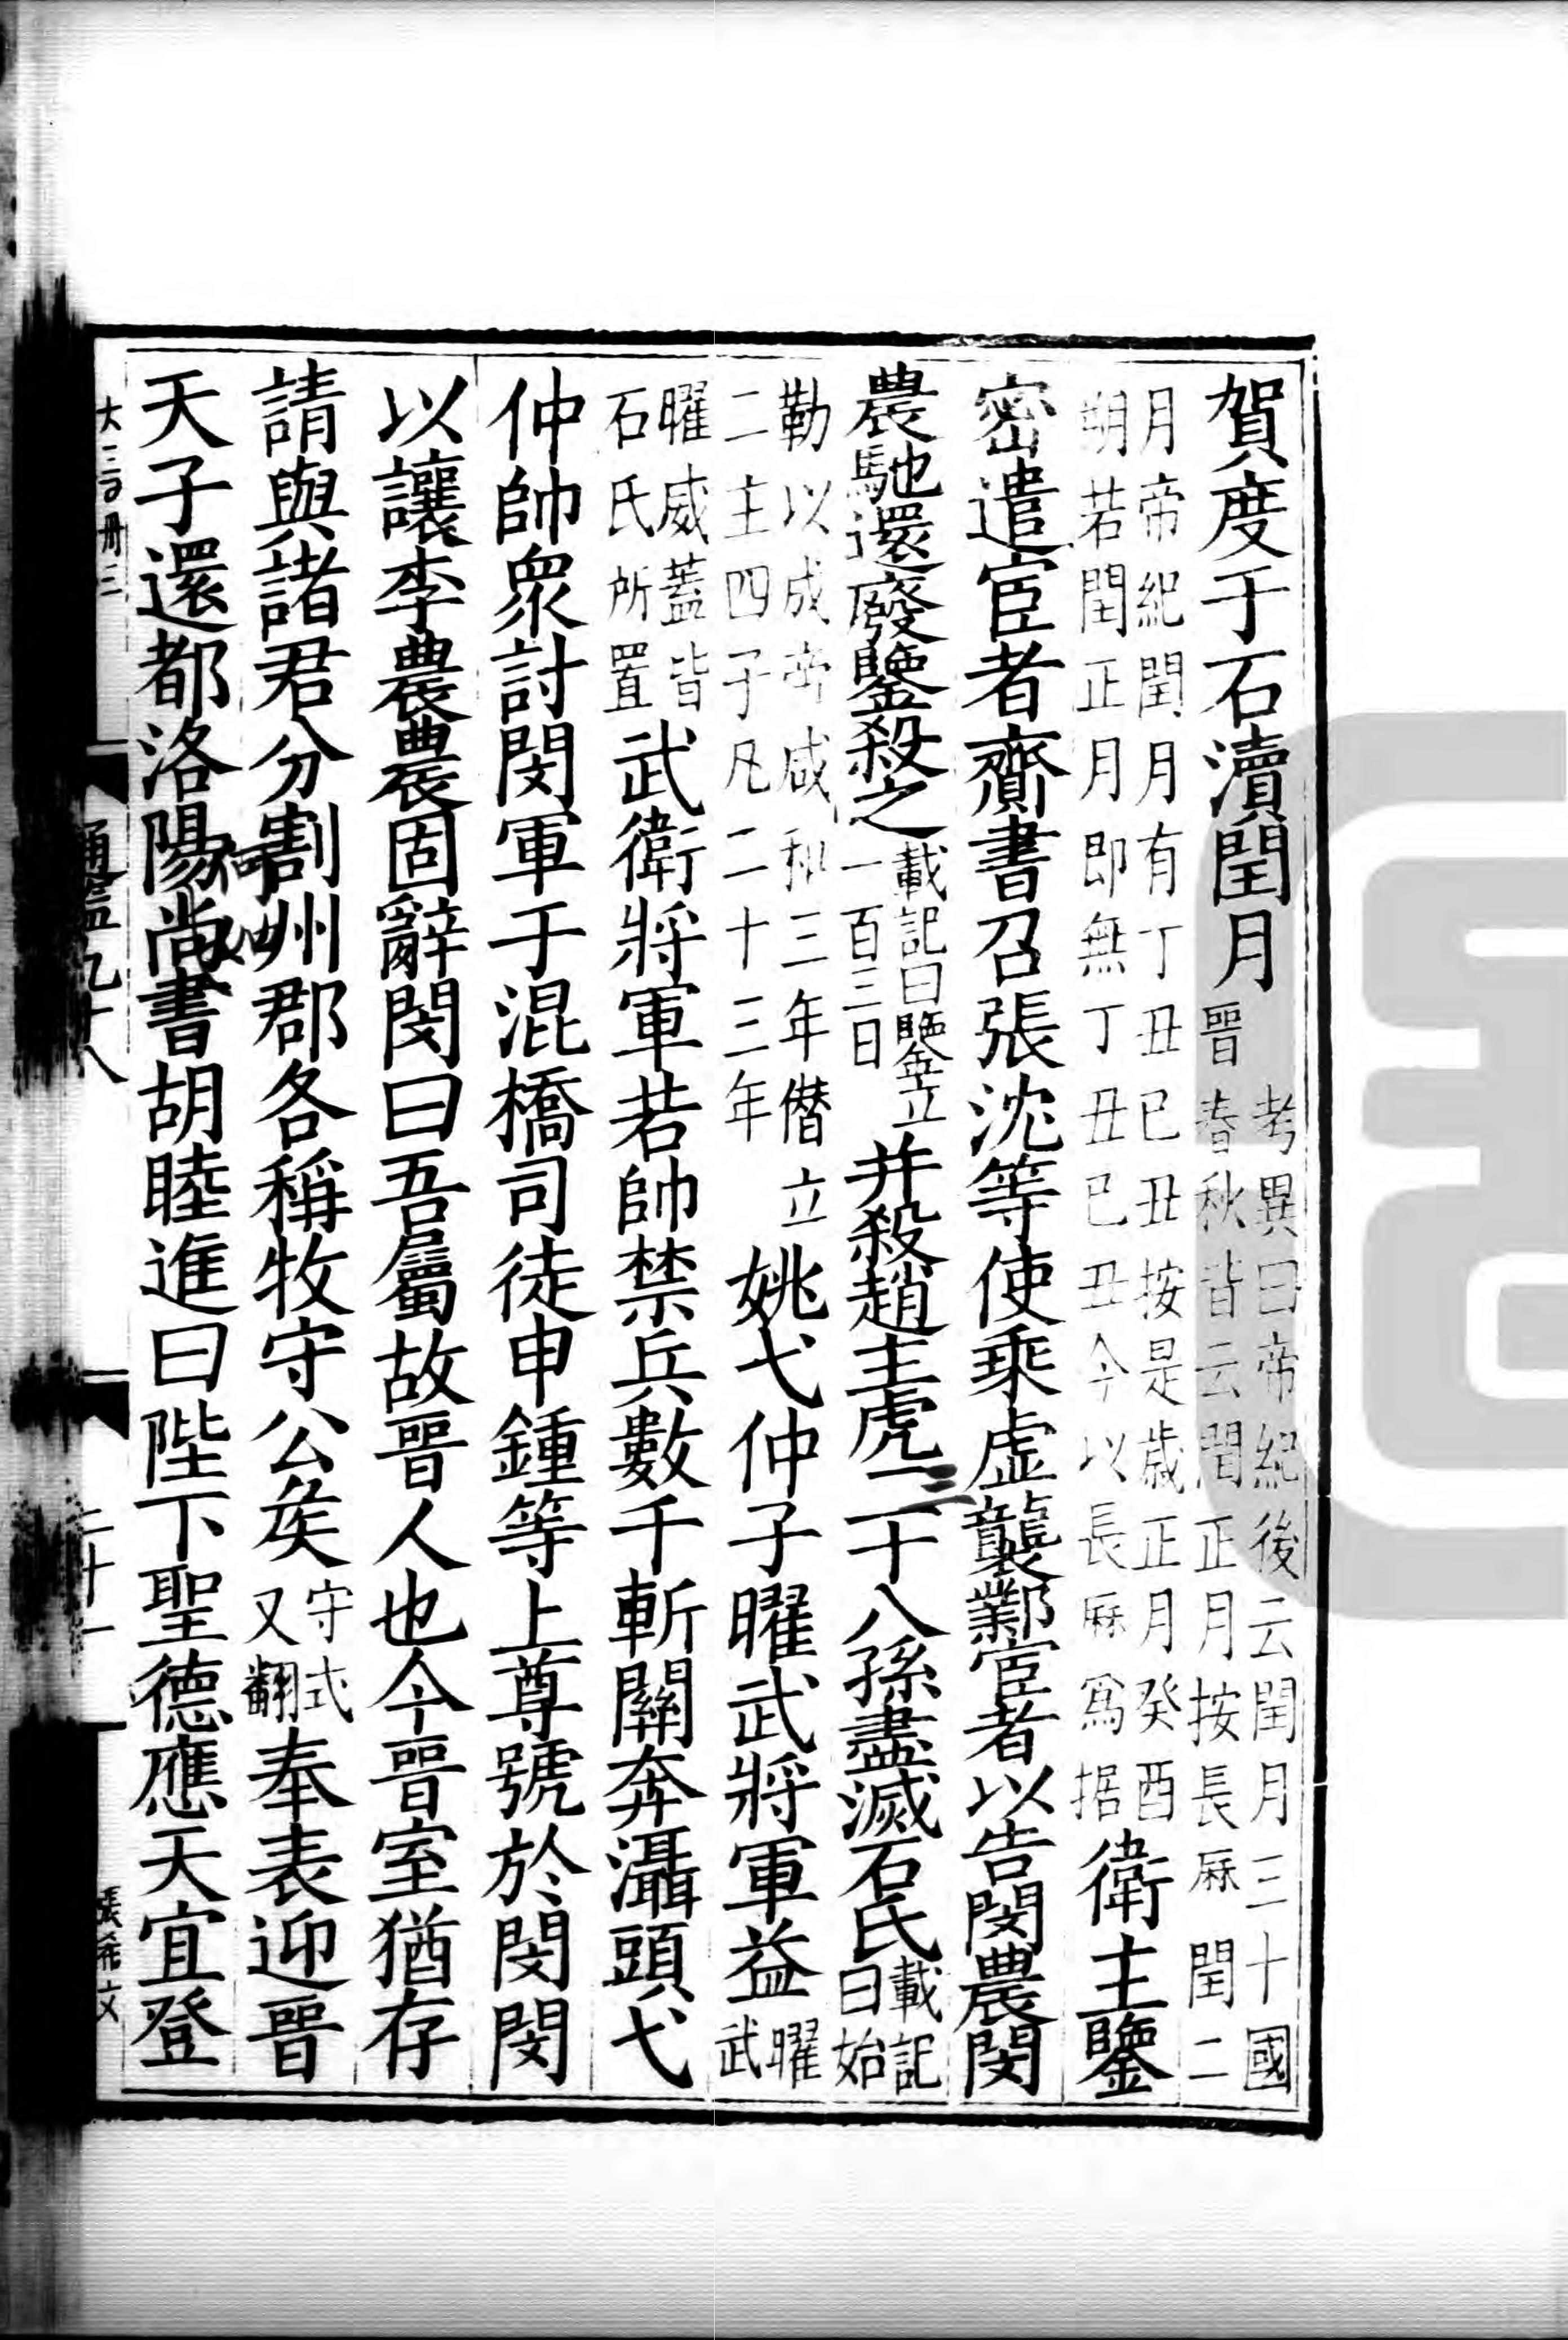 賀度于石瀆閏月考異曰帝紀後云閏月三十國晉春秋皆云閏正月按長厤閏二
月帝紀閏月有丁丑己丑按是歲正月癸酉朔若閏正月即無丁丑己丑今以長厤爲据衛主鑒
密遣宦者齎書召張沈等使乘虛襲鄴宦者以告閔農閔
農馳還廢鑒殺之載記曰鑒立一百三日并殺趙主虎二十八孫盡滅石氏載記曰始
勒以成帝咸和三年僭立二主四子凡二十三年姚弋仲子曜武將軍益曜武
曜威蓋皆石氏所置武衛將軍若帥禁兵數千斬關奔灄頭弋
仲帥衆討閔軍于混橋司徒申鍾等上尊號於閔閔
以讓李農農固辭閔曰吾屬故晉人也今晉室猶存
請與諸君分割州郡各稱牧守公矦守式又翻奉表迎晉
天子還都洛陽尚書胡睦進曰陛下聖德應天宜登
通鑑九十八 二十一 張希文